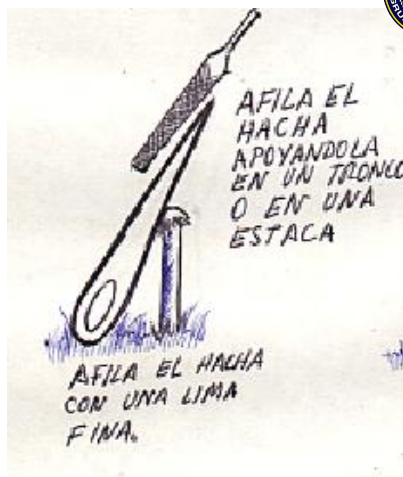 AFILA EL
HACHA
APOYANDOLA
EN UN TRONCO
O EN UNA
ESTACA
AFILA EL HACHA
CON UNA LIMA
FINA.